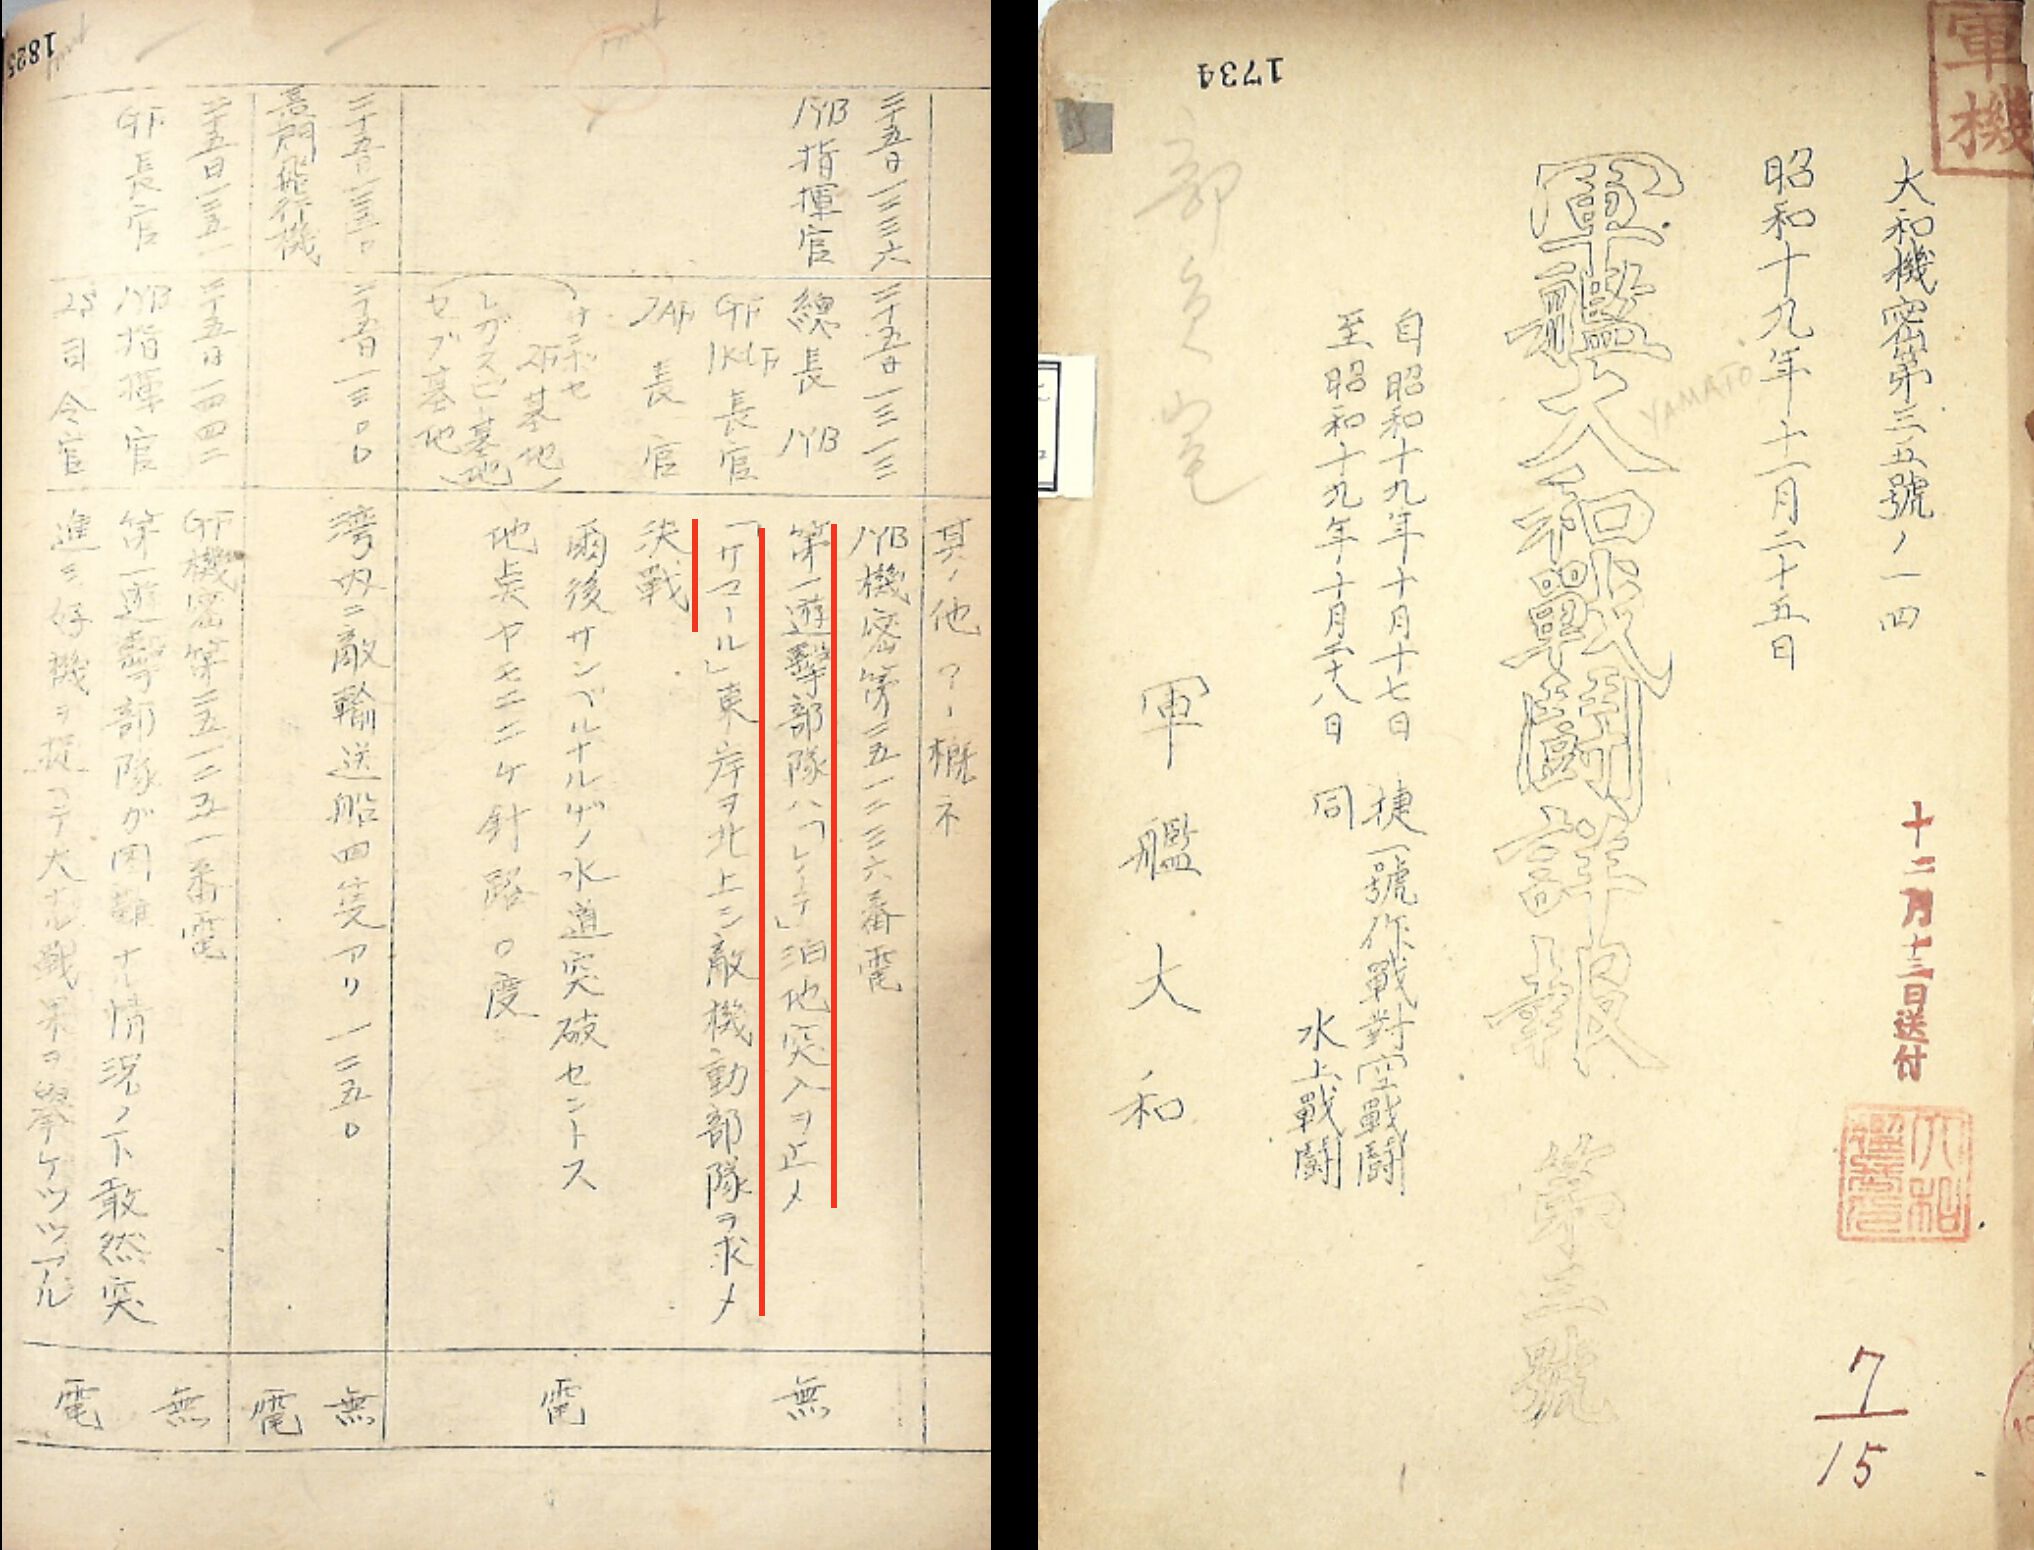 軍機
大和機密第三五號ノ一四
昭和十九年十一月二十五日
十二月十三日送付
軍艦大和戰鬪詳報 第三號
YAMATO
自昭和十九年十月十七日
至昭和十九年十月二十八日
捷一號作戰對空戰鬪
同 水上戰鬪
軍艦大和
部員室
1734
7
15
其ノ他
二十五日一二三六
1YB指揮官
二十五日一三一三
總長 1YB
GF 1KdF 長官
長官
2F基地
レガスピー基地
セブ基地
1YB機密第二五一二三六番電
第一遊撃部隊ハ「レイテ」泊地突入ヲ止メ
「サマール」東岸ヲ北上シ敵機動部隊ヲ求メ
決戰
爾後サンベルナルヂノ水道突破セントス
地点ヤモニニケ針路〇度
無
電
長門飛行機
二十五日一三〇〇
湾内ニ敵輸送船四隻アリ 一二五〇
無
電
GF長官
二十五日一四四二
1YB指揮官
2S司令官
GF機密第二五一二五一番電
第一遊撃部隊ガ困難ナル情況ノ下敢然突
進シ好機ヲ捉ヘテ大ナル戰果ヲ擧ゲツツアル
無
電